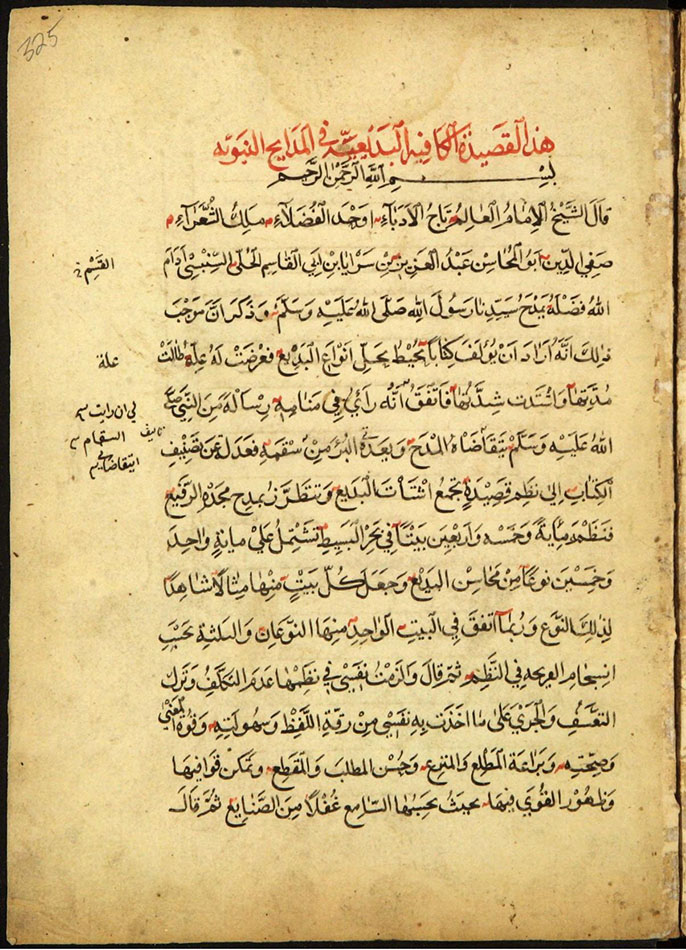 325
هذه القصيدة الكافية البديعية في المدايح النبويه
بسم الله الرحمن الرحيم
قال الشيخ الامام العالم تاج الادباء اوحد الفضلاء ملك الشعراء
صفي الدين ابو المحاسن عبد العزيز بن سرايا بن ابي القاسم الحلي السنبسي ادام
القسم
الله فضله بمدح سيدنا رسول الله صلى الله عليه وسلم وذكر ان موجب
ذلك انه اراد ان يؤلف كتابا يحيط بجلي انواع البديع فعرضت له علة طالت
علة
مدتها واشتدت شدتها فاتفق انه راي في منامه رسالة من النبي صلى
لي ان رايت
الله عليه وسلم يتقاضاه المدح ويعده البرء من سقمه فعدل عن تصنيف
السقام
الكتاب الى نظم قصيدة تجمع اشتات البديع وتتطرز بمدح مجده الرفيع
فنظم مايه وخمسه واربعين بيتا في بحر البسيط تشتمل على ماية واحد
وخمسين نوعا من محاسن البديع وجعل كل بيت منها مثالا شاهدا
لذلك النوع وربما اتفق في البيت الواحد منها النوعان والثلثة بحسب
انسجام القريحه في النظم ثم قال والزمت نفسي في نظمها عدم التكلف وترك
التعسف والجري على ما اخذت به نفسي من رقة اللفظ وسهولته وقوة المعني
وصحته وبراعة المطلع والمنزع وحسن المطلب والمقطع وتمكن قوافيها
وظهور القوي فيها بحيث يحسبها السامع غفلا من الصنايع ثم قال